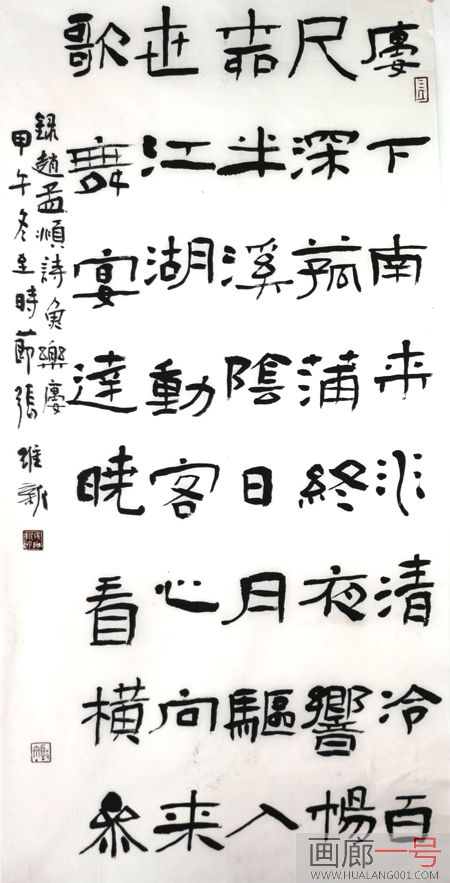 廔下南来水清泠百
尺深菰蒲終夜響楊
柳半溪陰日月驅人
世江湖動客心向来
歌舞宴達曉看橫參
錄趙孟頫詩魚樂廔
甲午冬至時節張維新
画廊一号
WWW.HUALANG001.COM